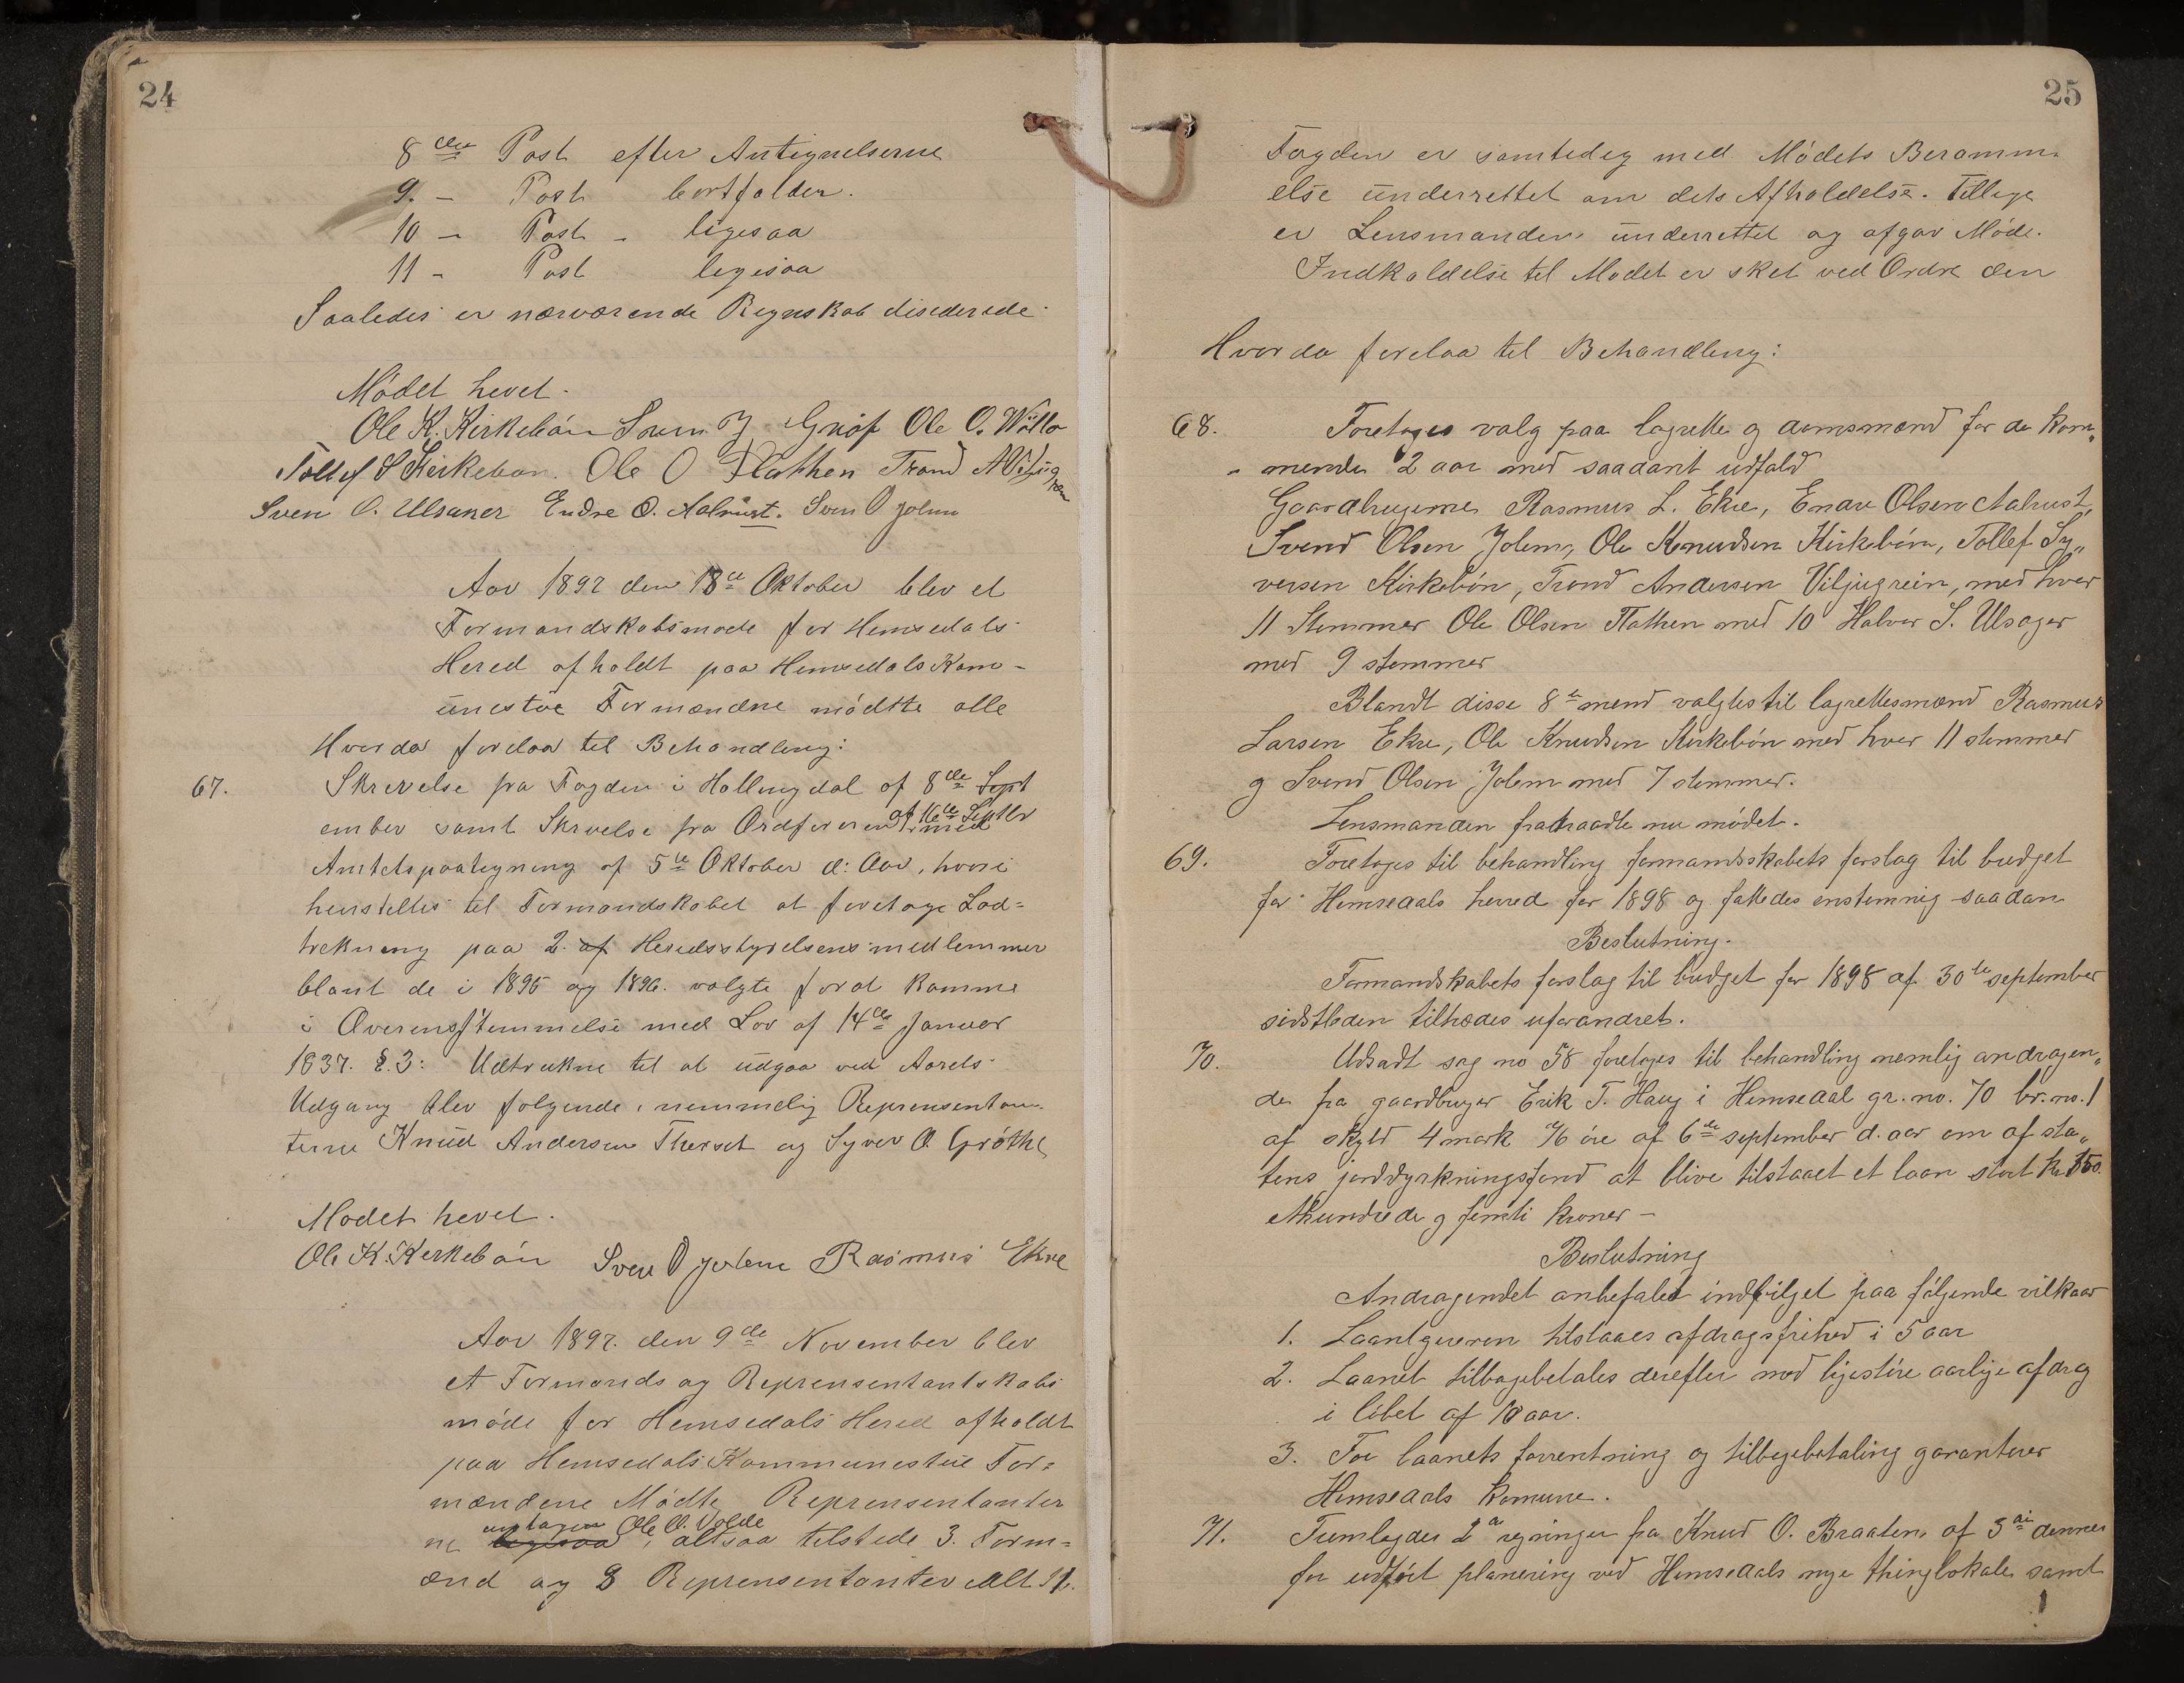 24
8de Post efter Antignelserne
9. - Post bortfalder.
10 - Post - ligesaa
11 - Post ligesaa
Saaledes er nærværende Regnskab disederede
Mödet hevet.
Ole K. Kirkebön Sven Gröf Ole O. Wøllo
Tollef S Kirkebøn. Ole O Flathen Trond A Viljugrein
Sven O. Ulsaker Endre O. Aalrust. Sven O Jolem
Aar 1897 den 18de Oktober blev et
Formandskabsmøde for Hemsedals
Hered afholdt paa Hemsedals Kom-
unestue Formændne mödtte alle
Hvorda forelaa til Behandling:
67. Skrivelse fra Fogden i Hallingdal af 8de Sept
ember samt Skrivelse fra Ordføreren af 16de Septbr med
Amtetspaategning af 5te Oktober d: Aar, hvori
henstilles til Formandskabet at foretage Lod=
trekning paa 2. af Heredsstyrelsens medlemmer
blant de i 1895 og 1896. valgte forat komme
i Overensstemmelse med Lov af 14de Januar
1837. §.3: Udtrukne til at udgaa ved Aarets
Udgang blev følgende, nemmelig Reprensentan-
terne Knud Andersen Therset og Syver O. Gröthe
Mødet hevet.
Ole K. Kirkebön Sven O Jolem Rasmus Ekre
Aar 1897. den 9de November blev
et Formands og Reprensentantskabs
möde for Hemsedals Hered afholdt
paa Hemsedals Kommunestue For=
mændene Mödte Reprensentanter
ne ligesaa untagen Ole O. Volde, altsaa tilstede 3. Form=
ænd og 8 Reprensentanter Alt 11.
25
Fogden er samtedig med Mödets Beramm-
else underrettet om dets Afholdelse. Tillige
er Lensmanden underrettet og afgav Möde.
Indkaldelse til Mødet er sket ved Ordre den
Hvorda forelaa til Behandling:
68. Foretages valg paa lagrette og domsmænd for de kom„
„ mende 2 aar med saadant udfald
Gaardbrugerne Rasmus L. Ekre, Endre Olsen Aalrust,
Svend Olsen Jolem, Ole Knudsen Kirkebön, Tollef Sy„
versen Kirkebön, Trond Andersen Viljugrein, med hver
11 Stemmer Ole Olsen Flathen med 10 Halvor S. Ulsager
med 9 stemmer
Blandt disse 8te mend valgtes til lagrettesmænd Rasmus
Larsen Ekre, Ole Knudsen Kirkebön med hver 11 stemmer
og Svend Olsen Jolem med 7 stemmer.
Lensmanden fratraadte nu mödet.
69. Foretoges til behandling formandsskabets forslag til budget
for Hemsedals herred for 1898 og fattedes enstemnig saadan
Beslutning.
Formandskabets forslag til budget for 1898 af 30te september
sidstleden tiltrædes uforandret.
70. Udsadt sag no 58 foretoges til behandling nemlig andragen„
de fra gaardbruger Erik T. Haug i Hemsedal gr. no. 70 br. no. 1
af skyld 4 mark 76 öre af 6te september d. aar om af sta„
tens jorddyrkningsfond at blive tilstaaet et laan stort kr 150.
ethundrede og femti kroner -
Beslutning
Andragendet anbefales indvilget paa følgende vilkaar
1. Laantgeren tilstaaes afdragsfrihed i 5 aar
2. Laanet tilbagebetales derefter med ligestore aarlige afdrag
i löbet af 10 aar.
3. For laanets forrentning og tilbagebetaling garanterer
Hemsedals komune.
71. Fremlagdes 2 regninger fra Knud O. Braaten af 3 dennes
for udfört planering ved Hemsedals nye thinglokale samt